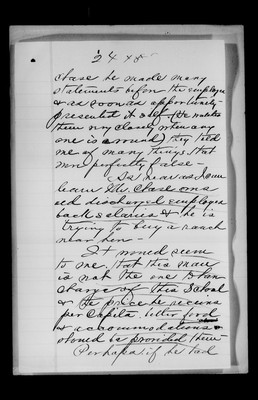 Chase he made many
statements before the employee
& as soon as opportunity
presented it self (He watches
them very closely when any
one is around) they told
me of many things that
were perfectly false -
As near as I can
learn Mr. Chase owes
old discharged employees
back salaries & he is
trying to buy a ranch
near here -
It would seem
to me that this man
is not the one to have
charge of this School
& the price he receives
per Capita, better food
& accommodations
should be provided them -
Perhaps if he had